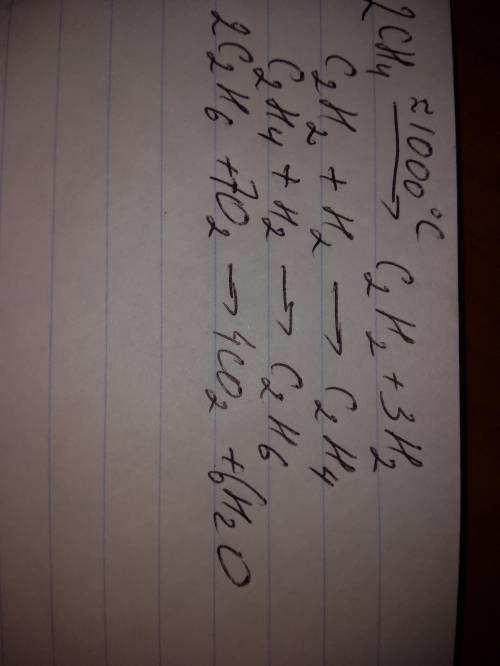 2CH₄ ≈1000°C → C₂H₂ + 3H₂
C₂H₂ + H₂ → C₂H₄
C₂H₄ + H₂ → C₂H₆
2C₂H₆ + 7O₂ → 4CO₂ + 6H₂O